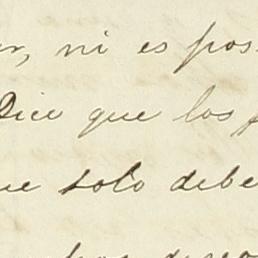 ni es pos
Dice que los
ue solo debe